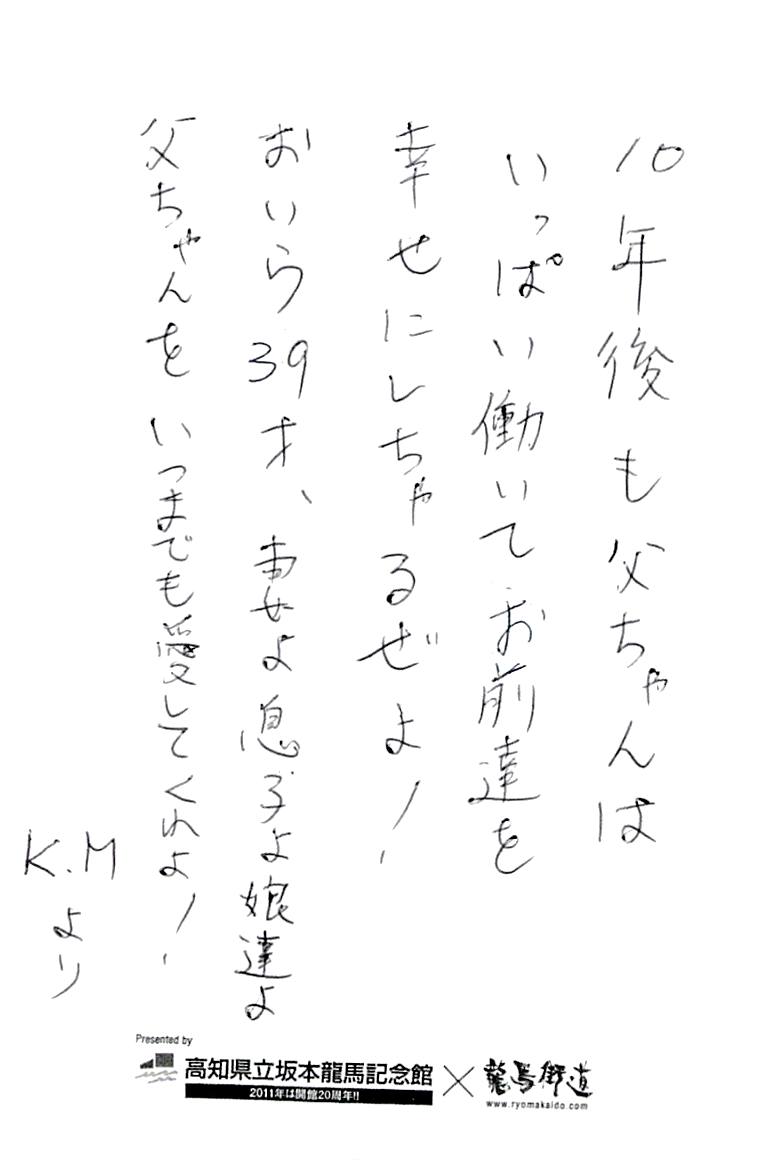 10年後も父ちゃんは
いっぱい働いてお前達を
幸せにしちゃるぜよ!
おいら39才、妻よ息子よ娘達よ
父ちゃんをいつまでも愛してくれよ!
K.Mより
Presented by
高知県立坂本龍馬記念館
2011年は開館20周年!!
×
龍馬街道
www.ryomakaido.com